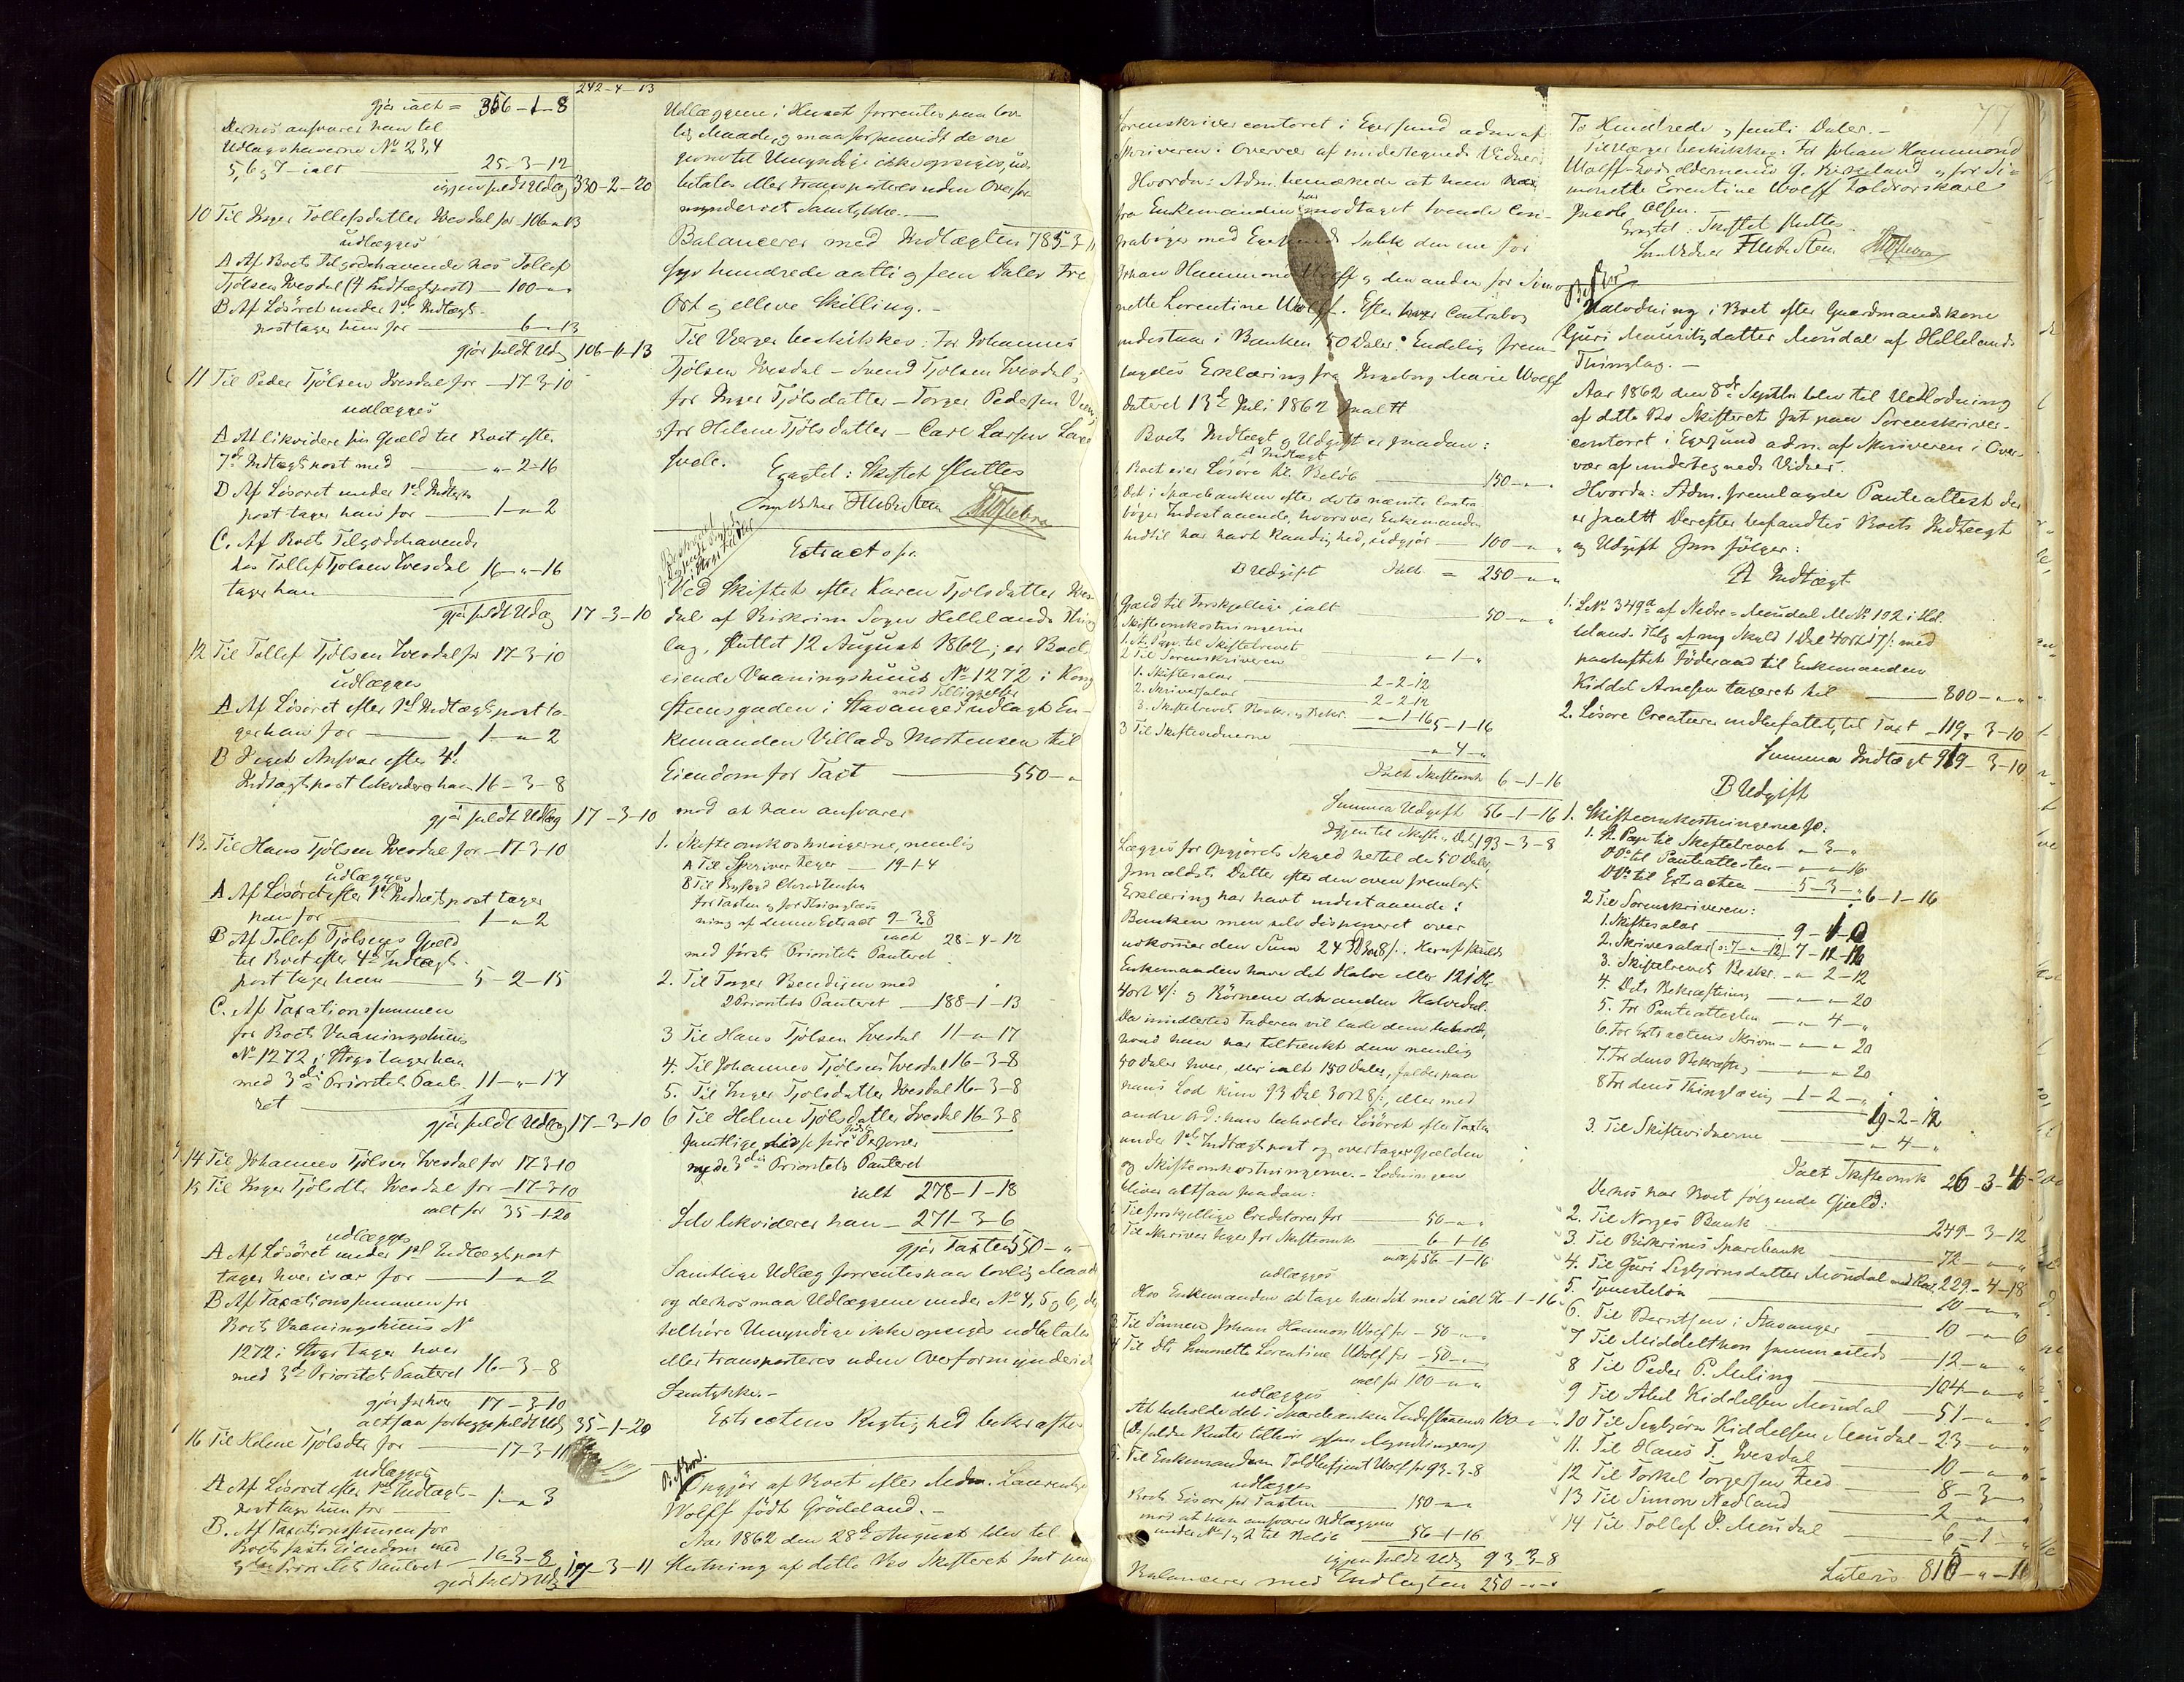 242-4-13
gjør ialt = 356-1-8
Derhos ansvarer han til
Udlægshaverne No 2,3,4
5, 6 og 7 - ialt 25-3-12
igjen fuldt Udlæg 330-2-20
10 Til Inger Tollefsdatter Ivesdal for 106-"-13
udlægges
A Af Boets Tilgodehavende hos Tollef
Tjølsen Ivesdal (4 Indtægtspost) - 100-"-"
B Af Løsøret under 1ste Indtægts-
post tager hun for 6-"-13
gjør fuldt Udlæg 106-"-13
11 Til Peder Tjølsen Ivesdal for - 17-3-10
udlægges
A At likvidere sin Gjæld til Boet efter
7de Indtægtspost med "-2-16
B Af Løsøret under 1ste Indtægts
post tager han for 1-"-2
C. Af Boets Tilgodehavende
hos Tollef Tjølsen Ivesdal 16-"-16
tager han
gjør fuldt Udlæg 17-3-10
12 Til Tollef Tjølsen Ivesdal for 17-3-10
udlægges
A Af Løsøret efter 1ste Indtægtspost ta-
ger han for 1-"-2
B I eget Ansvar efter 4de
Indtægtspost likviderer han 16-3-8
gjør fuldt Udlæg 17-3-10
13. Til Hans Tjølsen Ivesdal for - 17-3-10
udlægges
A Af Løsøret efter 1ste Indtægtspost tager
han for 1-"-2
B Af Tollef Tjølsens Gjæld
til Boet efter 4de Indtægts-
post tager han 5-2-15
C. Af Taxationssummen
for Boets Vaaningshuus
No 1272 i Stvgr tager han
med 3die Prioritets Pante- 11-"-17
ret
gjør fuldt Udlæg 17-3-10
14 Til Johannes Tjølsen Ivesdal for 17-3-10
15 Til Inger Tjølsdtr Ivesdal for - 17-3-10
ialt for 35-1-20
udlægges
A Af Løsøret under 1ste Indtægtspost
tager hver især for 1-"-2
B Af Taxationssummen for
Boets Vaaningshuus No
1272 i Stvgr tager hver
med 3de Prioritets Panteret 16-3-8
gjør for hver 17-3-10
altsaa for begge fuldt Udlg 35-1-20
16 Til Helene Tjølsdtr for 17-3-11
udlægges
A Af Løsøret efter 1ste Indtægts-
post tager hun for 1-"-3
B. Af Taxationssummen for
Boets faste Eiendom med
3die Prioritets Panteret 16-3-8
gjør fuldt Udlg 17-3-11
Udlæggene i Huset forrentes paa lov-
lig Maade, og maa forsaavidt de ere
gjorte til Umyndige ikke opsiges, ud-
betales eller transporteres uden Overfor-
mynderiets Samtykke.
Balancerer med Indtægten 785-3-11
syv hundrede aatti og fem Daler tre
Ort og elleve Skilling.-
Til Værger beskikkes: For Johannes
Tjølsen Ivesdal - Svend Tjølsen Ivesdal;
for Inger Tjølsdatter - Torger Pedersen
og for Helene Tjølsdatter - Carl Larsen
Eragtet: Skiftet sluttes
Extract
Ved Skiftet efter Karen Tjølsdatter Ives-
dal af Birkrim Sogn Hellelands Thing
lag, sluttet 12 August 1862, er Boet
eiende Vaaningshuus No 1272 i Kong
med Tilliggelser
steensgaden i Stavanger udlagt En-
kemanden Villads Mortensen til
Eiendom for Taxt 550-"
mod at han ansvarer
1. Skifteomkostningerne, nemlig
A Til Skriver Feyer 19-1-4
B Til Byfogd Christensen
for Taxten og for Thinglæs-
ning af denne Extract 9-3-8
ialt 28-4-12
med første Prioritets Panteret
2. Til Torger Bendixen med
2 Prioritets Panteret - 188-1-13
3 Til Hans Tjølsen Ivesdal 11-"-17
4. Til Johannes Tjølsen Ivesdal 16-3-8
5. Til Inger Tjølsdatter Ivesdal 16-3-8
6 Til Helene Tjølsdatter Ivesdal 16-3-8
samtlige disse fire
med 3die Prioritets Panteret
ialt 278-1-18
Selv likviderer han - 271-3-6
gjør Taxten 550-"-
Samtlige Udlæg forrentes paa lovlig Maade
og derhos maa Udlæggene under No 4, 5 og 6, der
tilhøre Umyndige ikke opsiges udbetales
eller transporteres uden Overformynderiets
Samtykke.-
Extractens Rigtighed bekræftes
Opgjør af Boet efter Mdm. Laurentze
Wolff født Grødeland.-
Aar 1862 den 28de August blev til
Slutning af dette Bo Skifteret sat paa
77
Sorenskrivercontoret i Egersund adm. af
Skriveren i Overvær af undertegnede Vidner.
Hvorda: Adm. bemærkede at han
har
fra Enkemanden modtaget tvende Con-
trabøger med Egersunds den ene for
Johan Hammond Wolff og den anden for Simo-
nette Lorentine Wolff. Efter hver Contrabog
indestaar i Banken 50 Daler. Endelig frem-
lagdes Erklæring fra Ingeborg Marie Wolff
dateret 13de Juli 1862 saalt
Boets Indtægt og Udgift er saadan:
A Indtægt
1 Boet eier Løsøre til Beløb 150-"-"
2 Det i Sparebanken efter de to nævnte Contra
bøger Indestaaende, hvorover Enkemanden
indtil har havt Raadighed, udgjør 100-"-"
Ialt = 250-"-"
B Udgift
1 Gjæld til Forskjellige ialt 50-"-"
2 Skifteomkostningerne
1. St. Papr. til Skiftebrevet "-1-"
2 Til Sorenskriveren
1. Skiftesalær 2-2-12
2. Skriversalær 2-2-12
3. Skiftebrevets Beskr. og Bekr. "-1-16 5-1-16
3 Til Skiftevidnerne "-4-"
Ialt Skifteomk 6-1-16
Summa Udgift 56-1-16
Igjen til Skifte og Deling 193-3-8
Lægges for Opgjørets Skyld hertil de 50 Daler,
som ældste Datter efter den oven fremlagte
Erklæring har havt indestaaende i
Banken men selv disponeret over
udkommer den Sum 243 D 3 ort 8 s. Heraf skulde
Enkemanden have det Halve eller 121 Dlr
4 ort 4 s. og Børnene det andet Halvedel.
Da imidlertid Faderen vil lade dem beholde,
hvad han har tiltænkt dem nemlig
50 Daler hver, eller ialt 150 Daler, falder paa
hans Lod kun 93 Dal 3 ort 8 s, eller med
andre Ord: han beholder Løsøret efter Taxten
under 1ste Indtægtspost og overtager Gjælden
og Skifteomkostningerne.- Lodningen
bliver altsaa saadan:
1 Til forskjellige Creditorer for 50-"-"
2 Til Skriver Feyer for Skifteomk 6-1-16
ialt for 56-1-16
udlægges
Hos Enkemanden at tage hver sit med ialt 56-1-16
3 Til Sønnen Johan Hammon Wolff for - 50-"-"
4 Til Dtr Simonette Lorentine Wolff for - 50-"-"
ialt for 100-"-"
udlægges
At beholde det i Sparebanken Indestaaende 100-"-"
5. Til Enkemanden Toldbetjent Wolff for 93-3-8
udlægges
Boets Løsøre for Taxten 150-"-"
mod at han ansvarer Udlæggene
under No 1 og 2 til Beløb 56-1-16
igjen fuldt Udlg 93-3-8
Balancerer med Indtægten 250-"-"
To Hundrede og femti Daler.-
Til Værger beskikkes: For Johan Hammond
Wolff og for Si-
monette Lorentine Wolff
Jacob Olsen.-
Eragtet: Skiftet sluttes
Udlodning i Boet efter Gaardmandskone
Guri Mauritzdatter Mondal af Hellelands
Thinglag.-
Aar 1862 den 8de Septbr blev til Udlodning
af dette Bo Skifteret sat paa Sorenskriver-
contoret i Egersund adm. af Skriveren i Over-
vær af undertegnede Vidner.
Hvorda: Adm. fremlagde Panteattest der
er saalt Derefter befandtes Boets Indtægt
og Udgift som følger:
A Indtægt
1. LNo 349a af Nedre-Mondal MNo 102 i Hel
lelands Thlg af ny Skyld 1 Dal 4 ort 17 s. med
paaheftet Føderaad til Enkemanden
Kiddel Arnesen taxeret til 800-"-"
2. Løsøre Creature indbefattet, til Taxt - 119-3-10
Summa Indtægt 919-3-10
B Udgift
1. Skifteomkostningerne:
1. St. Papr til Skiftebrevet "-3-"
Do til Panteattesten "-"-16
Do til Extracten 5-3-" 6-1-16
2 Til Sorenskriveren:
1. Skiftesalær
2. Skriversalær
3. Skiftebrevets Beskr. "-2-12
4. Dets Bekræftning "-"-20
5. For Panteattesten "-4-"
6. For Extractens Skrivn "-"-20
7. For dens Bekræftg "-"-20
8 For dens Thinglæsng 1-2-"
19-2-12
3. Til Skiftevidnerne "-4-"
Ialt Skifteomk 26-3-4
Derhos har Boet følgende Gjæld:
2. Til Norges Bank 249-3-12
3. Til Birkrims Sparebank 72-"-"
4. Til Guri Sigbjørnsdatter Mondal med Rente 229-4-18
5. Tjenesteløn 10-"-"
6. Til Berntsen i Stavanger 10-"-6
7 Til Middelthon sammesteds 12-"-"
8 Til Peder P. Meling 104-"-"
9 Til Abel Kiddelsen Mondal 51-"-"
10 Til Sigbjørn Kiddelsen Mondal - 23-"-"
11. Til Hans T. Ivesdal 10-"-"
12 Til Torkel Torgersen Feed 8-3-"
13 Til Simon Nedland 2-"-"
14 Til Tollef P. Mondal 6-1-"
Lateris